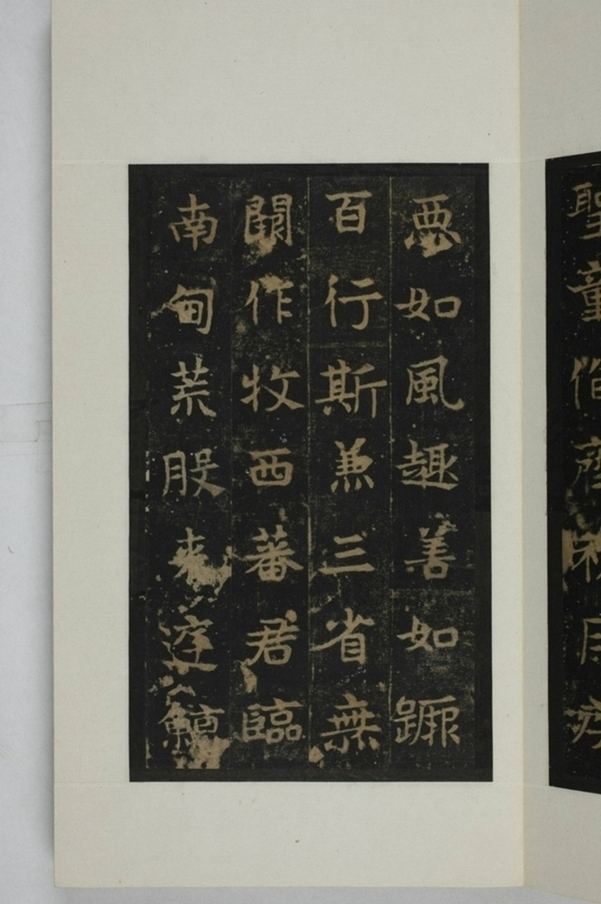 聖童
惡如風趣善如蹶
百行斯兼三省無
闕作牧西蕃君臨
南甸荒服来庭鯨